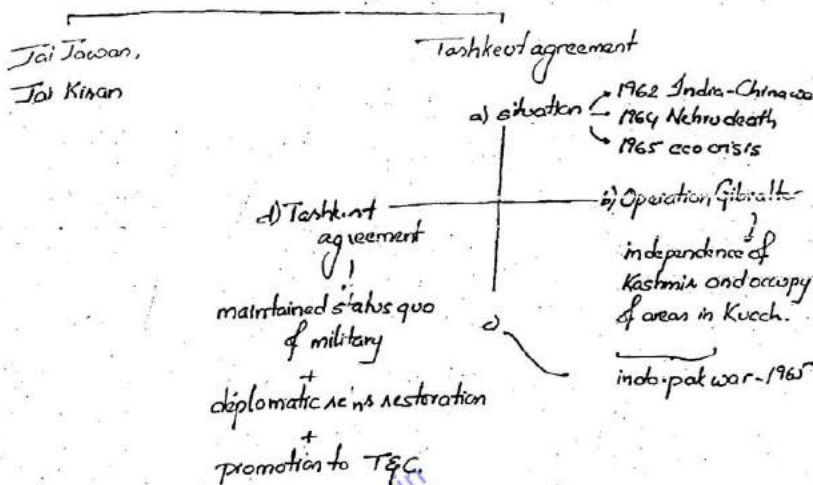 Jai Jawan,
Jai Kisan
Tashkent agreement
a) situation
1962 India-China wa
1964 Nehru death
1965 eco crisis
b) Operation, Gibralter
independence of
Kashmir and occupy
of areas in Kucch.
c)
indo-pak war-1965
d) Tashkent
agreement
maintained status quo
of military
+
diplomatic re'ns restoration
+
promotion to T&C.